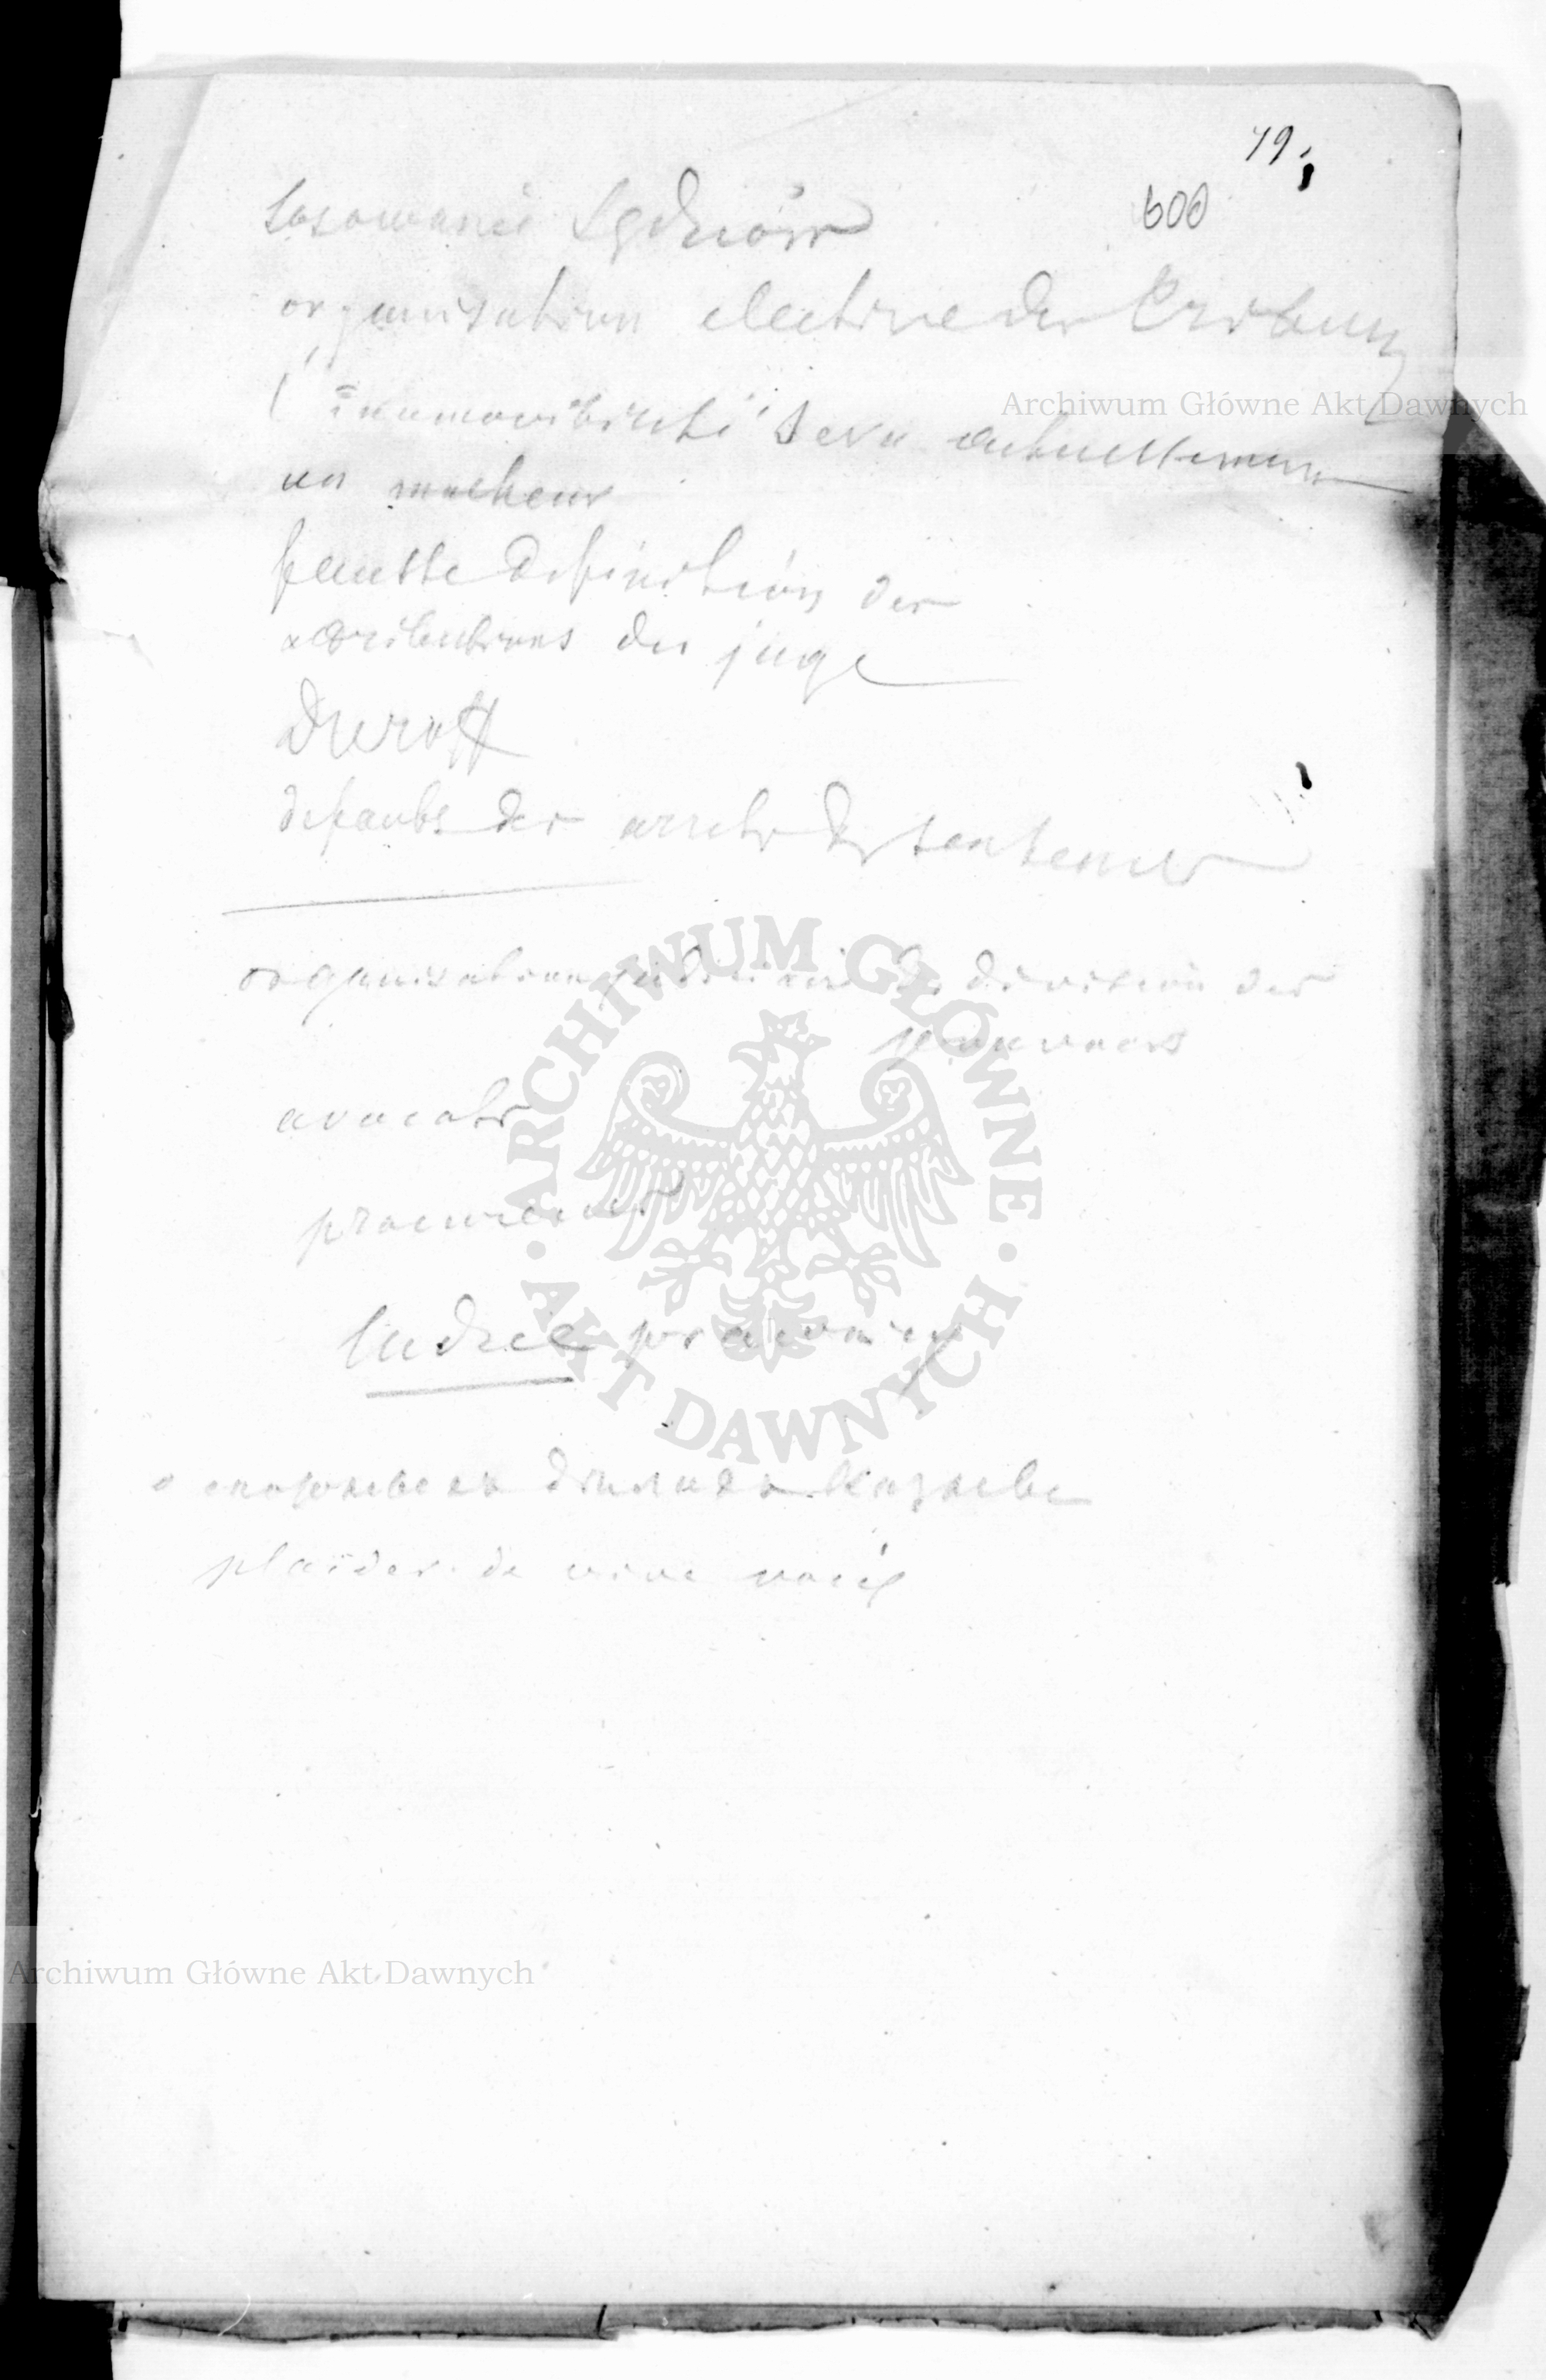 79.
600
Losowanie Sędziów
organisation elective des Tribun
l'inamovibilité sera actuellement
un malheur
fausse definition des
attributions du juge
defauts des arrets des sentences
organisation judiciaire division des
pouvoirs
avocats
procureur
ludzie prawnicy
plaider de vive voix
Archiwum Główne Akt Dawnych
ARCHIWUM GŁÓWNE AKT DAWNYCH
Archiwum Główne Akt Dawnych